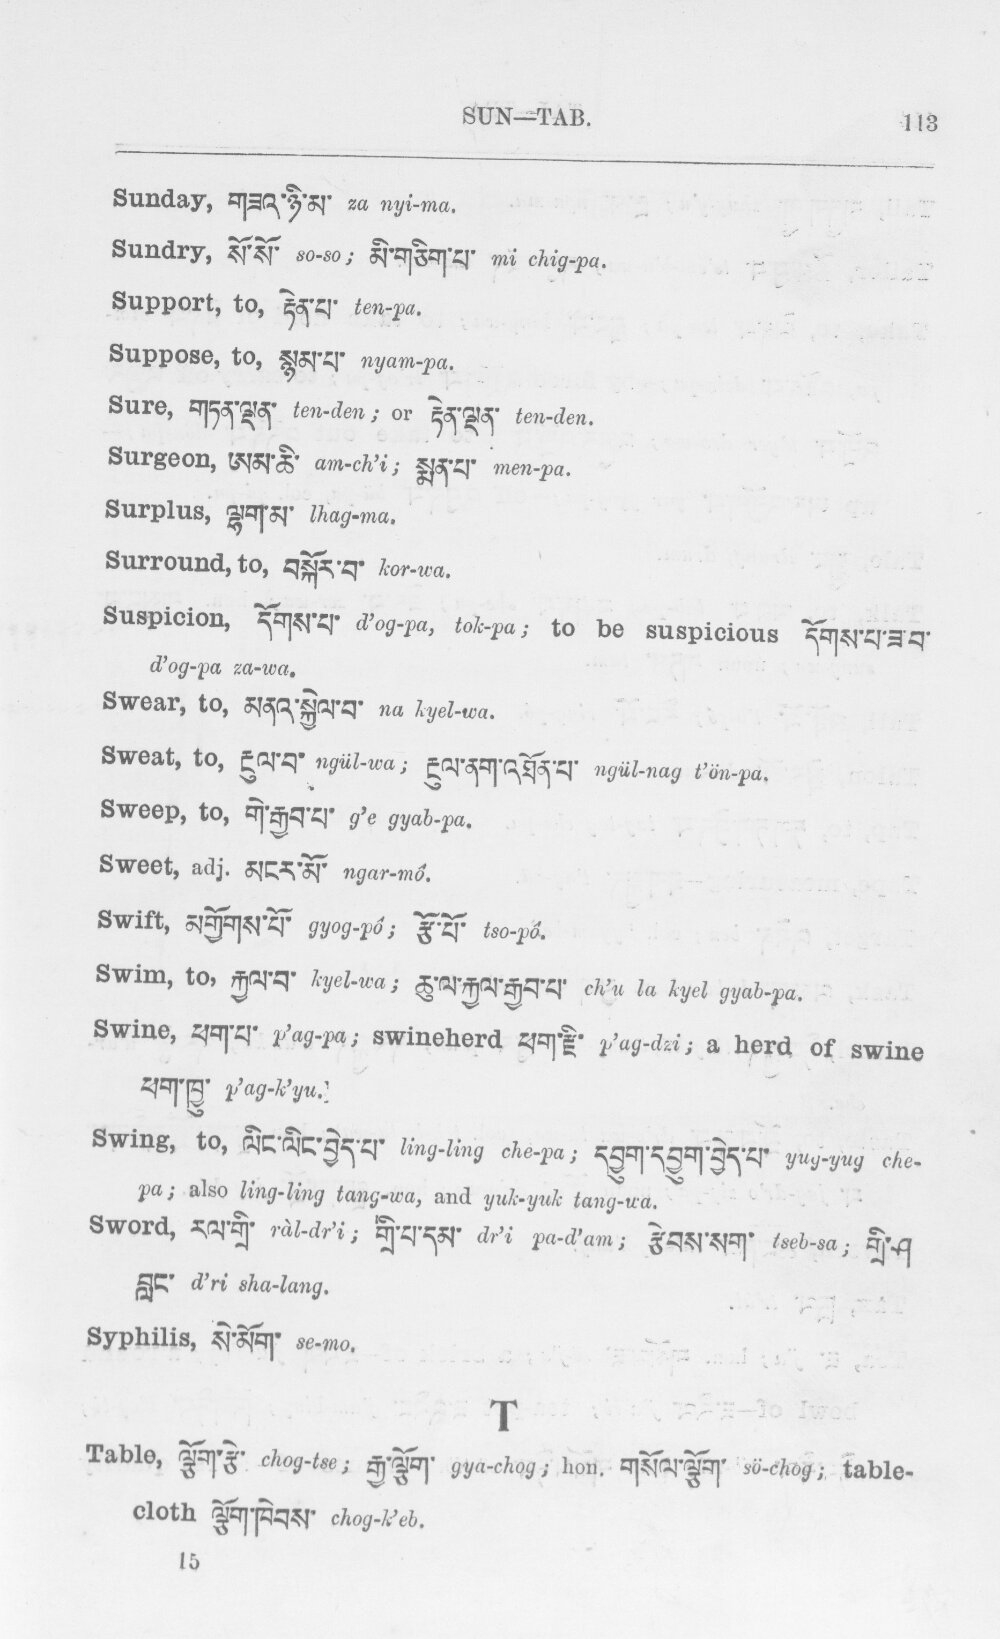 SUN—TAB. 113
Sunday, གཟའ་ཉི་མ་ za nyi-ma.
Sundry, སོ་སོ་ so-so; མི་གཅིག་པ་ mi chig-pa.
Support, to, རྟེན་པ་ ten-pa.
Suppose, to, སྙམ་པ་ nyam-pa.
Sure, གཏན་ལྡན་ ten-den; or རྟེན་ལྡན་ ten-den.
Surgeon, ཨམ་ཆི་ am-ch’i; སྨན་པ་ men-pa.
Surplus, ལྷག་མ་ lhag-ma.
Surround, to, བསྐོར་བ་ kor-wa.
Suspicion, དོགས་པ་ d’og-pa, tok-pa; to be suspicious དོགས་པ་ཟ་བ་
d’og-pa za-wa.
Swear, to, མནའ་སྐྱེལ་བ་ na kyel-wa.
Sweat, to, རྔུལ་བ་ ngül-wa; རྔུལ་ནག་འཐོན་པ་ ngül-nag t’ön-pa.
Sweep, to, གེ་རྒྱབ་པ་ g’e gyab-pa.
Sweet, adj. མངར་མོ་ ngar-mó.
Swift, མགྱོགས་པོ་ gyog-pó; རྩོ་པོ་ tso-pó.
Swim, to, རྐྱལ་བ་ kyel-wa; ཆུ་ལ་རྐྱལ་རྒྱབ་པ་ ch’u la kyel gyab-pa.
Swine, ཕག་པ་ p’ag-pa; swineherd ཕག་རྫི་ p’ag-dzi; a herd of swine
ཕག་ཁྱུ་ p’ag-k’yu.
Swing, to, ལིང་ལིང་བྱེད་པ་ ling-ling che-pa; དབྱུག་དབྱུག་བྱེད་པ་ yug-yug che-
pa; also ling-ling tang-wa, and yuk-yuk tang-wa.
Sword, རལ་གྲི་ ràl-dr’i; གྲི་པ་དམ་ dr’i pa-d’am; རྩེབས་སག་ tseb-sa; གྲི་ཤ
བླང་ d’ri sha-lang.
Syphilis, སེ་མོག་ se-mo.
T
Table, ལྕོག་རྩེ་ chog-tse; རྒྱ་ལྕོག་ gya-chog; hon. གསོལ་ལྕོག་ sö-chog; table-
cloth ལྕོག་ཁེབས་ chog-k’eb.
15